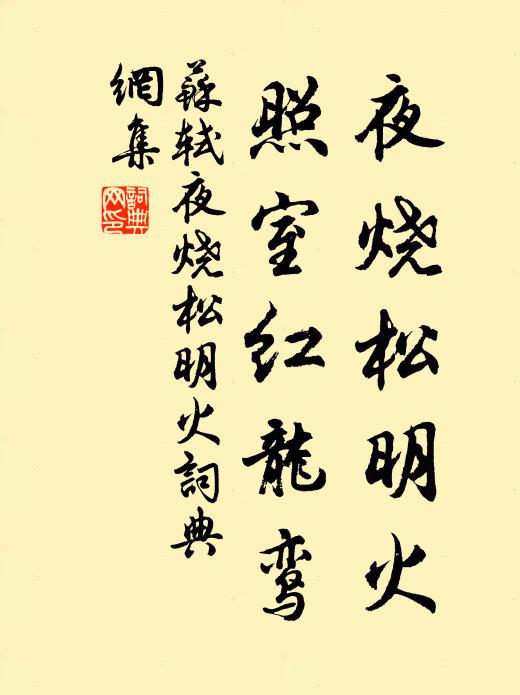 夜烧松明火
照室红龍鸾
蘇轼夜烧松明火詞典
網集
詞典
网印